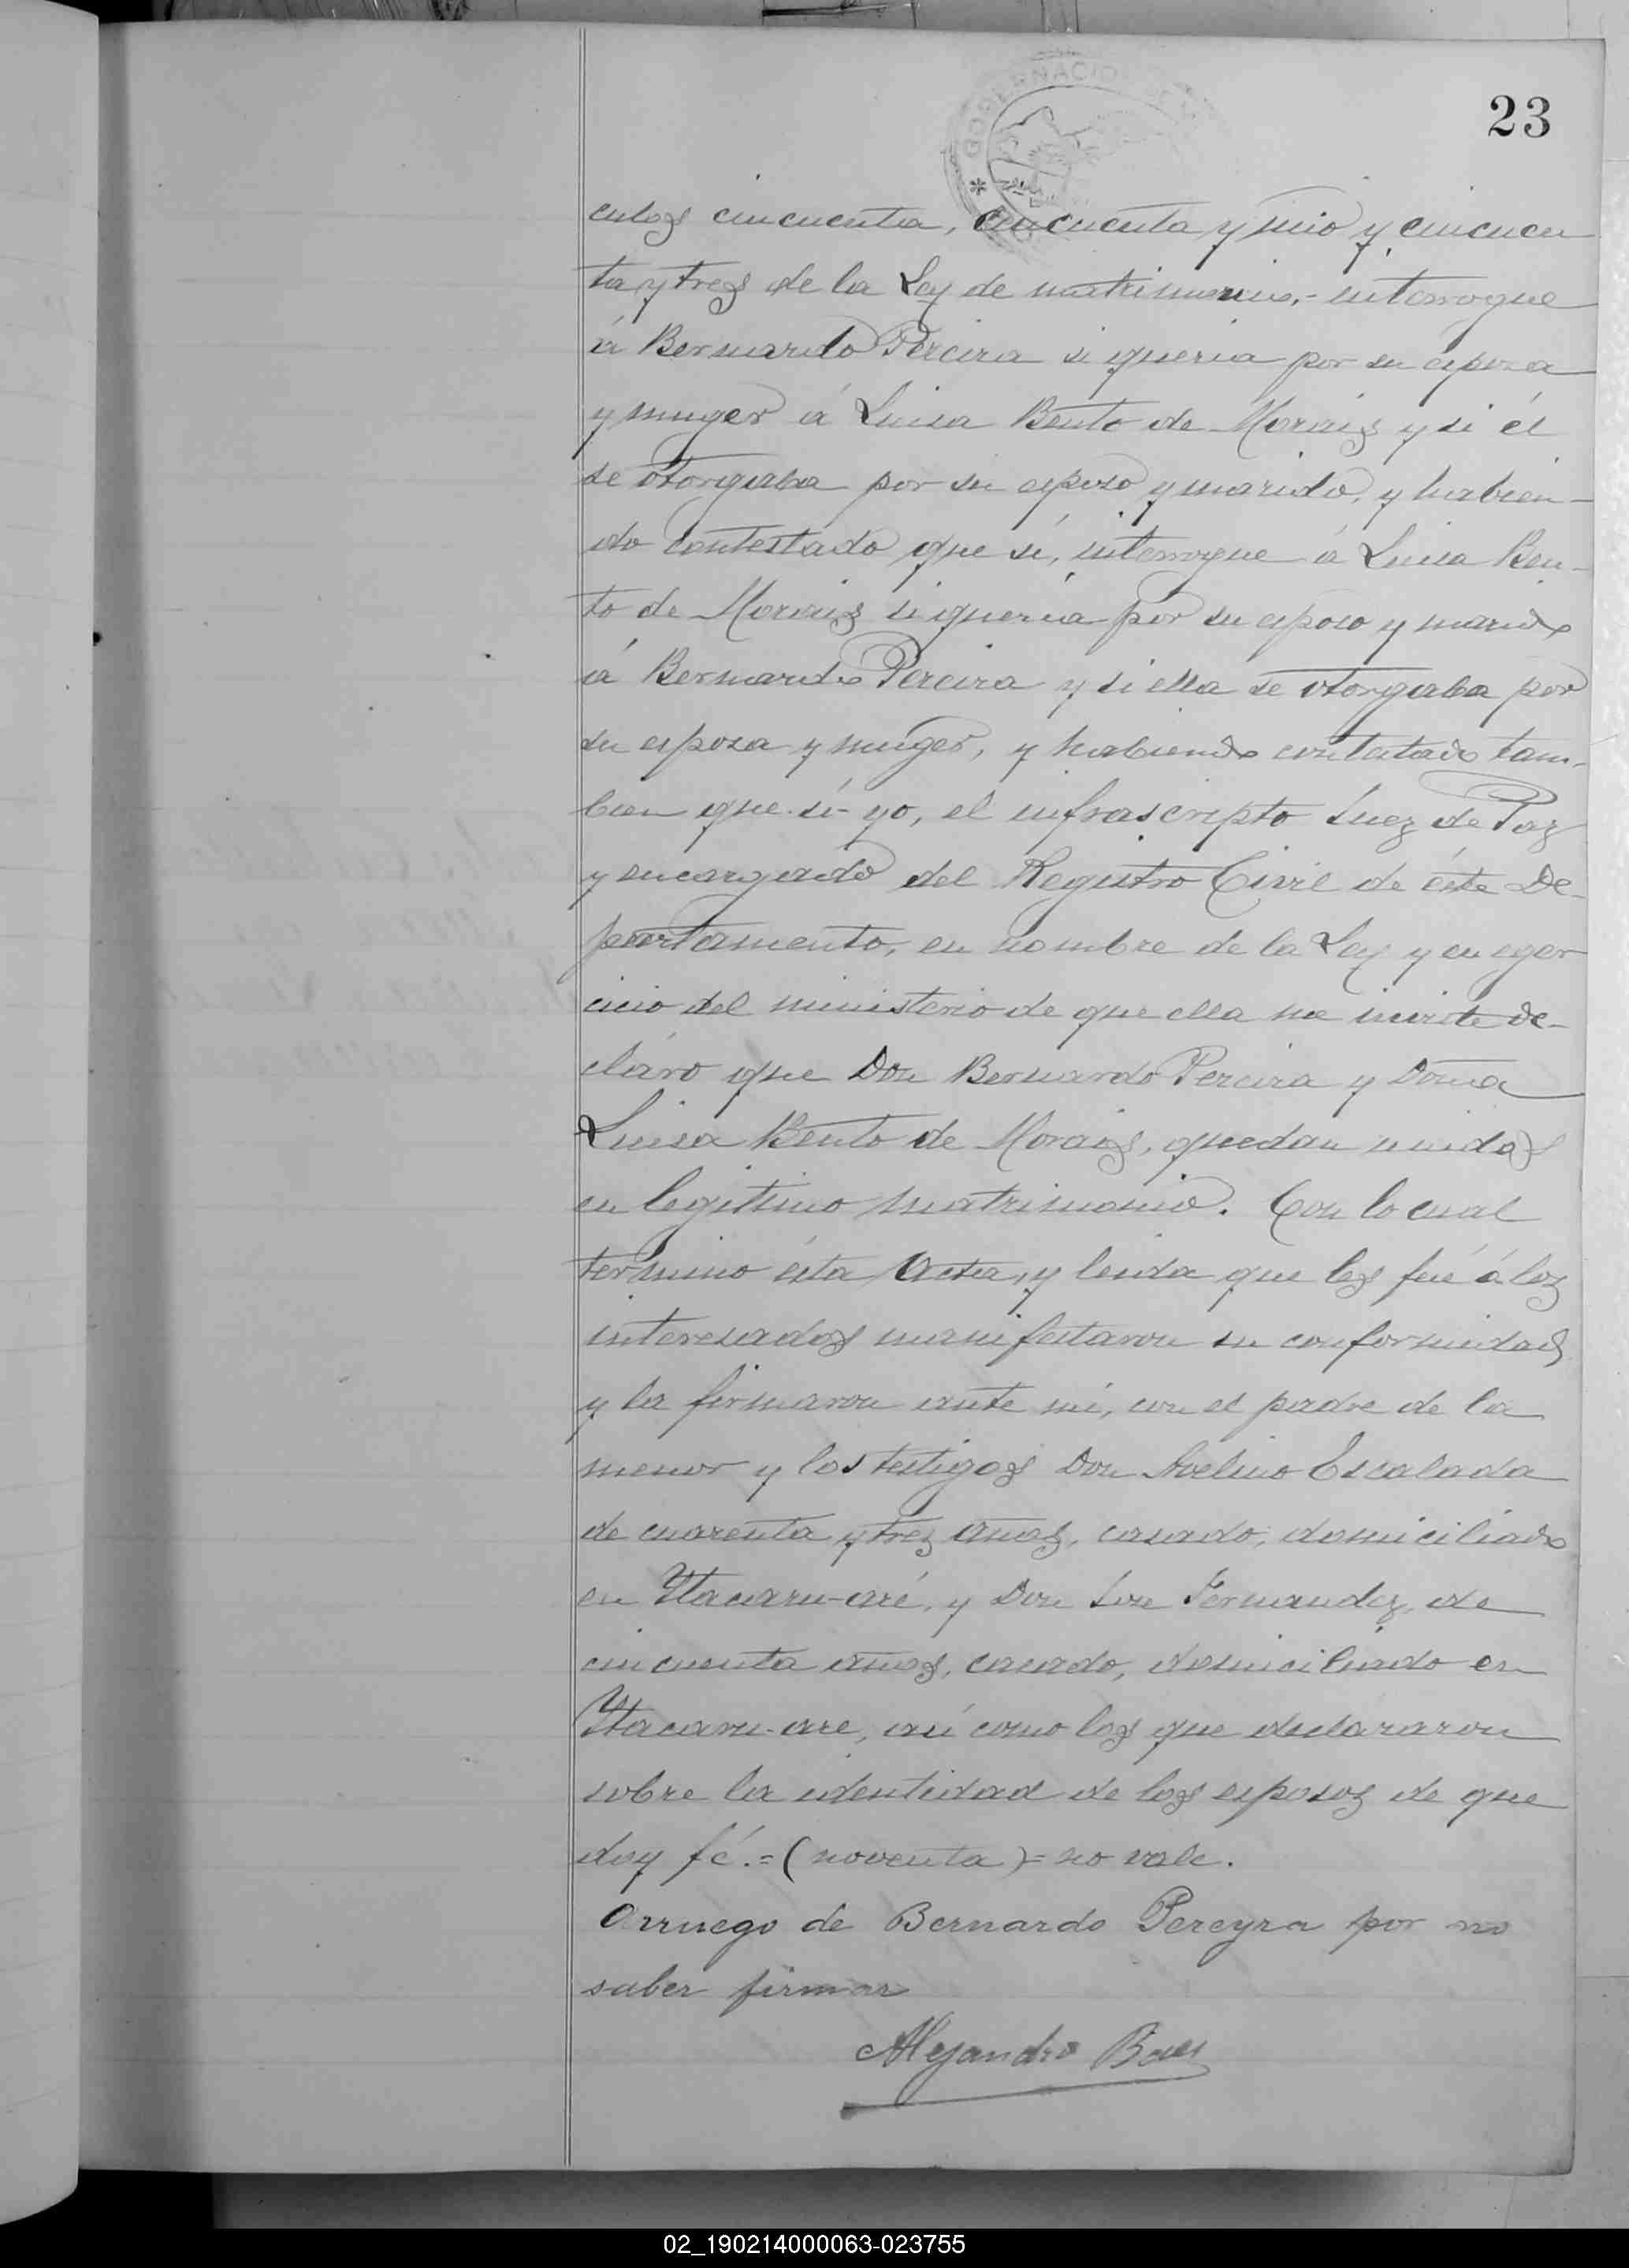 GOBERNACIO
23
culos cincuenta, cincuenta y uno y cincuen
ta y tres de la Ley de matrimonio,- interrogue
á Bernardo Pereira si queria por su esposa
y muger á Luisa Bento de Morais y si él
se otorgaba por su esposo y marido, y habien-
do contestado que sí, interrogue á Luisa Ben-
to de Morais si queria por su esposo y marido
á Bernardo Pereira y si ella se otorgaba por
su esposa y muger, y habiendo contestado tam-
bien que sí- yo, el infrascripto Juez de Paz
y encargado del Registro Civil de éste De-
partamento, en nombre de la Ley y en eger
cicio del ministerio de que ella me inviste de-
claro que Don Bernardo Pereira y Doña
Luisa Bento de Morais, quedan unidos
en legitimo matrimonio. Con lo cual
termino ésta Acta, y leida que les fué á los
interesados manifestaron su conformidad
y la firmaron ante mi, con el padre de la
menor y los testigos Don Avelino Escalada
de cuarenta y tres años, casado, domiciliado
en Itacaru-aré, y Don José Fernandez, de
cincuenta años, casado, domiciliado en
Itacaru-are, así como los que declararon
sobre la identidad de los esposos de que
doy fé.=(noventa)=no vale.
Arruego de Bernardo Pereyra por no
saber firmar
Alejandro Baes
02_190214000063-023755